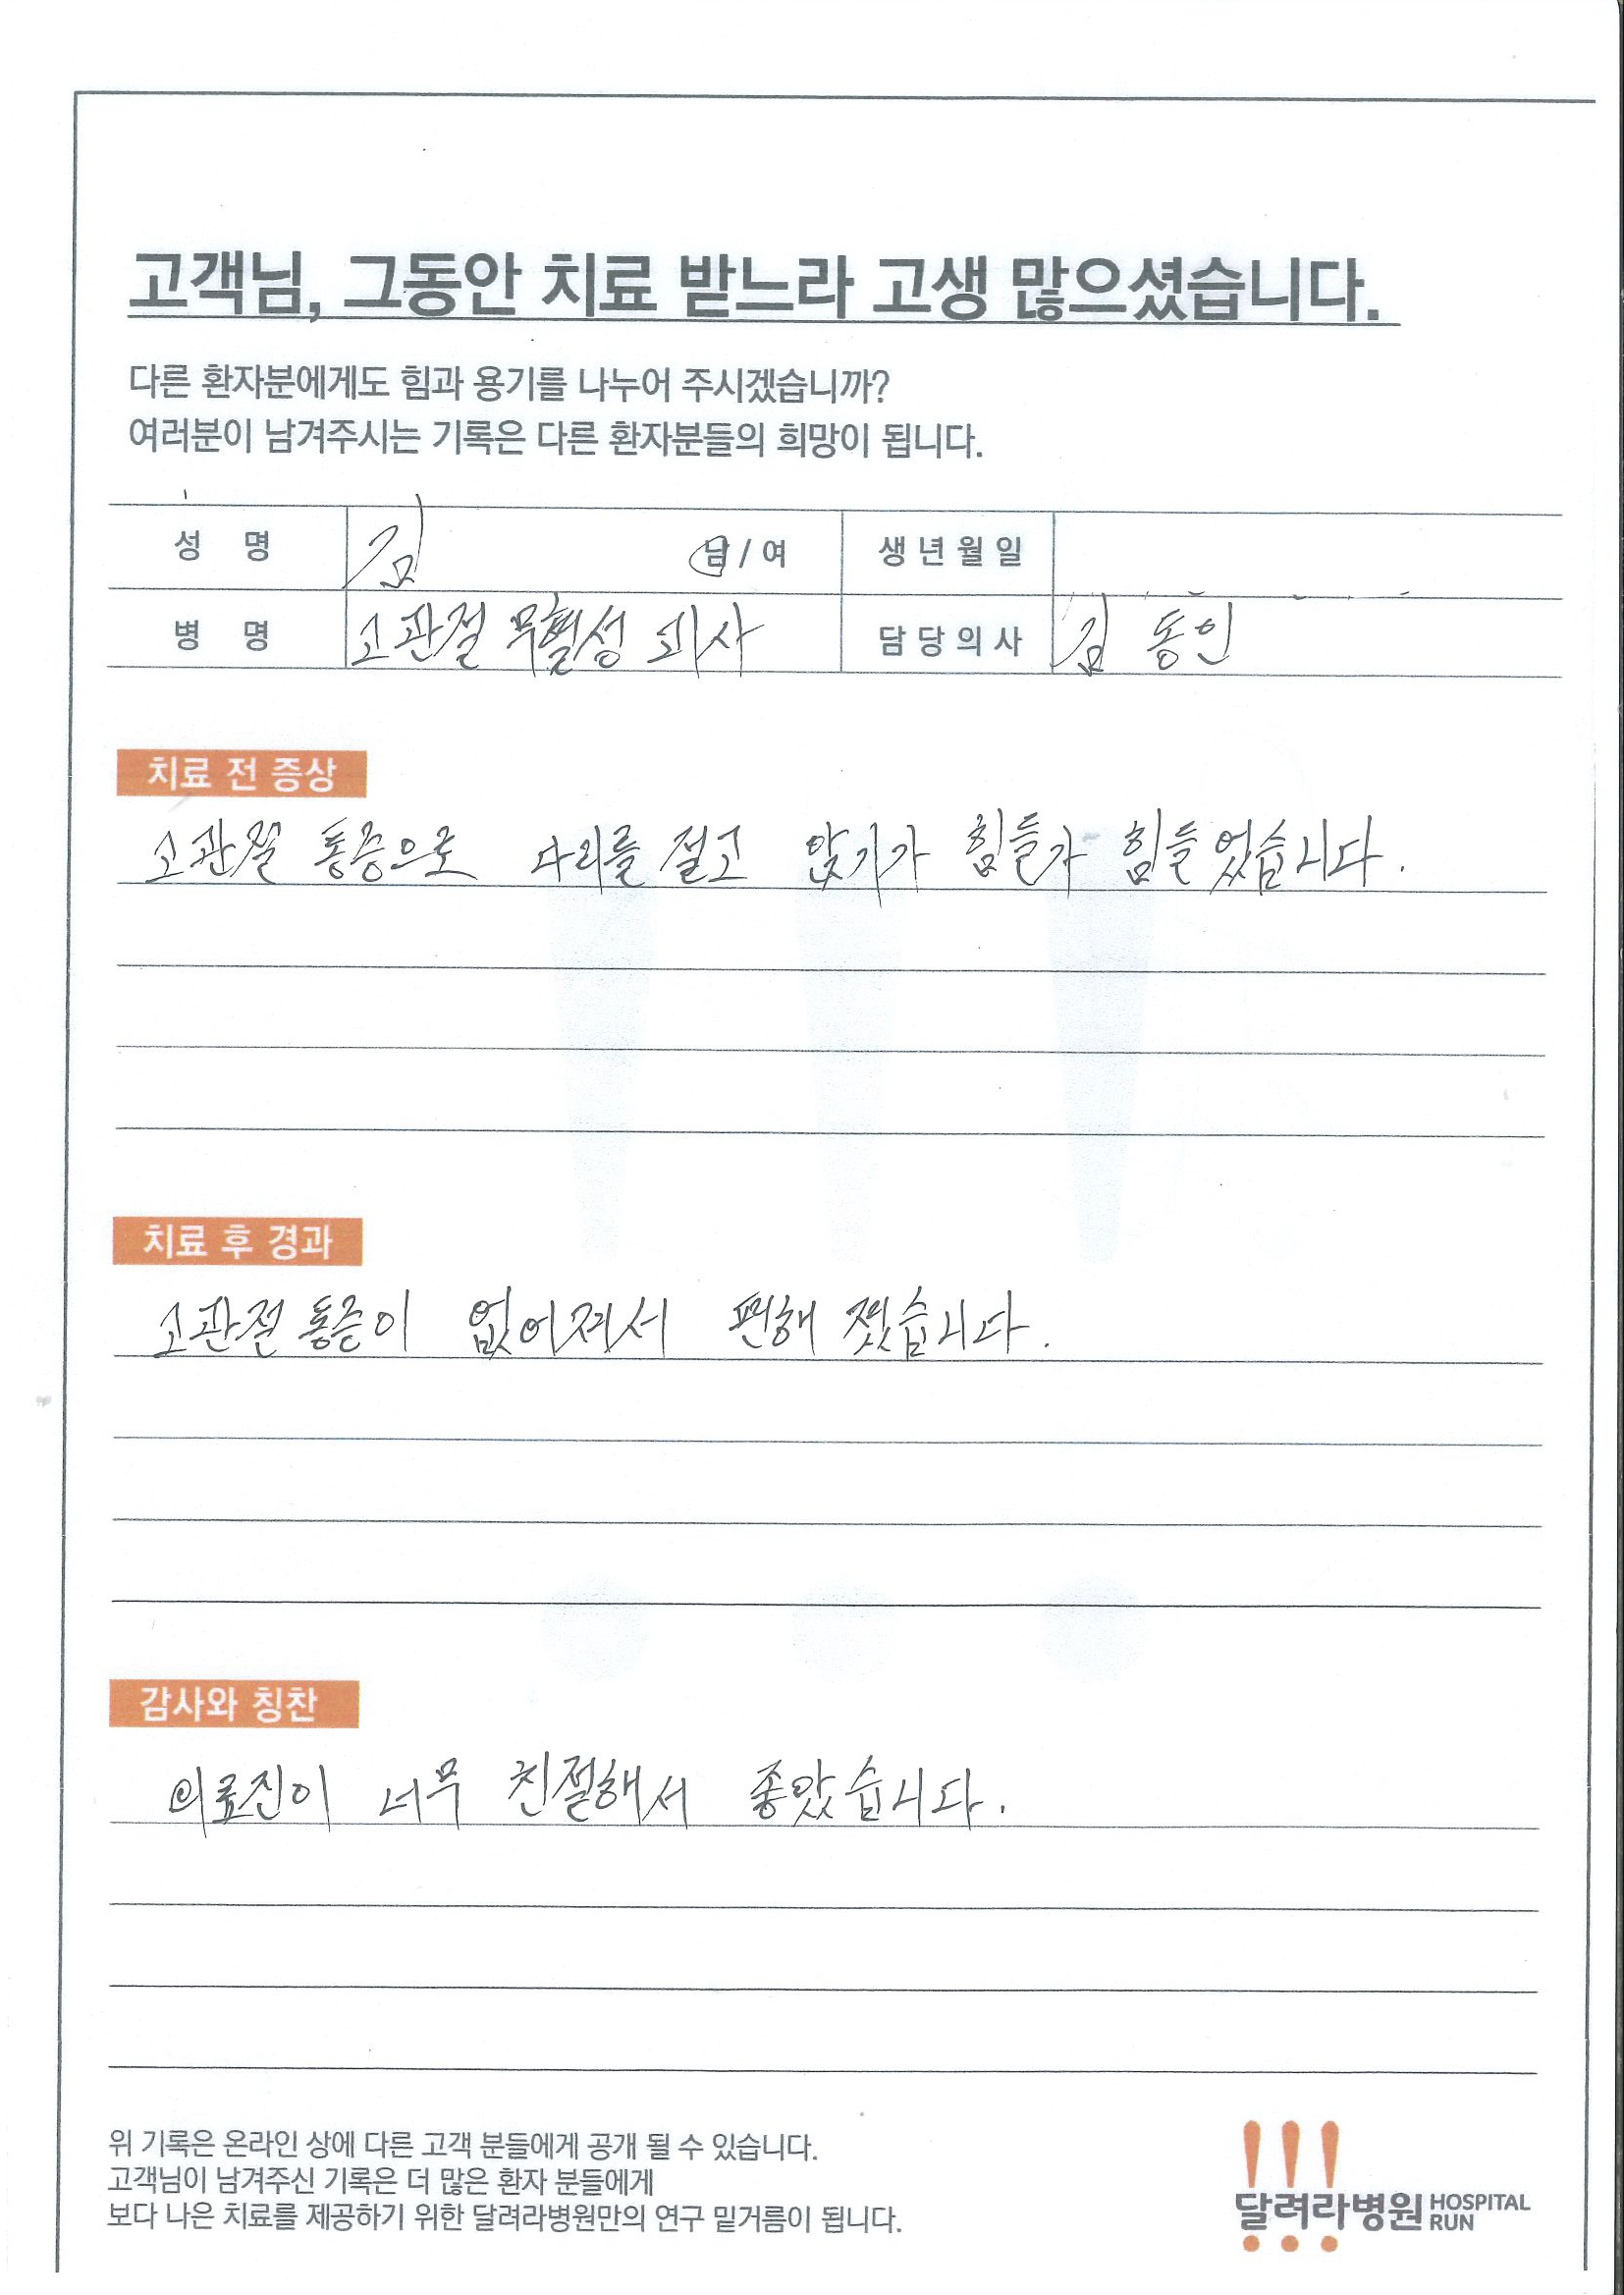 고객님, 그동안 치료 받느라 고생 많으셨습니다.
다른 환자분에게도 힘과 용기를 나누어 주시겠습니까?
여러분이 남겨주시는 기록은 다른 환자분들의 희망이 됩니다.
성 명 김 남/여 생년월일
병 명 고관절 무혈성 괴사 담당의사 김동인
치료 전 증상
고관절 통증으로 다리를 절고 앉기가 힘들가 힘들었습니다.
치료 후 경과
고관절 통증이 없어져서 편해 졌습니다.
감사와 칭찬
의료진이 너무 친절해서 좋았습니다.
위 기록은 온라인 상에 다른 고객 분들에게 공개 될 수 있습니다.
고객님이 남겨주신 기록은 더 많은 환자 분들에게
보다 나은 치료를 제공하기 위한 달려라병원만의 연구 밑거름이 됩니다.
달려라병원 HOSPITAL RUN